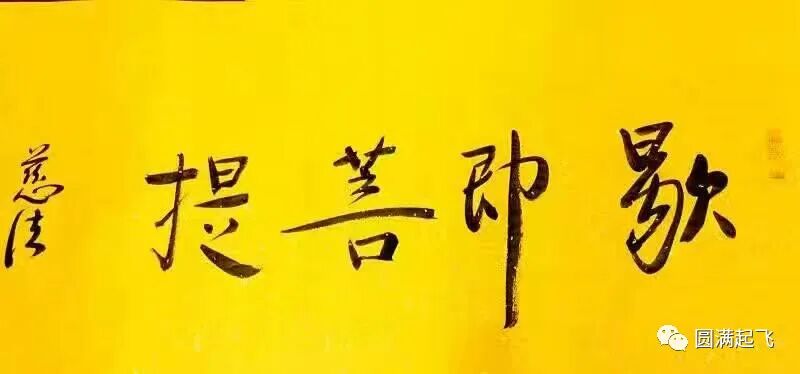 歇即菩提
慈法
圆满起飞